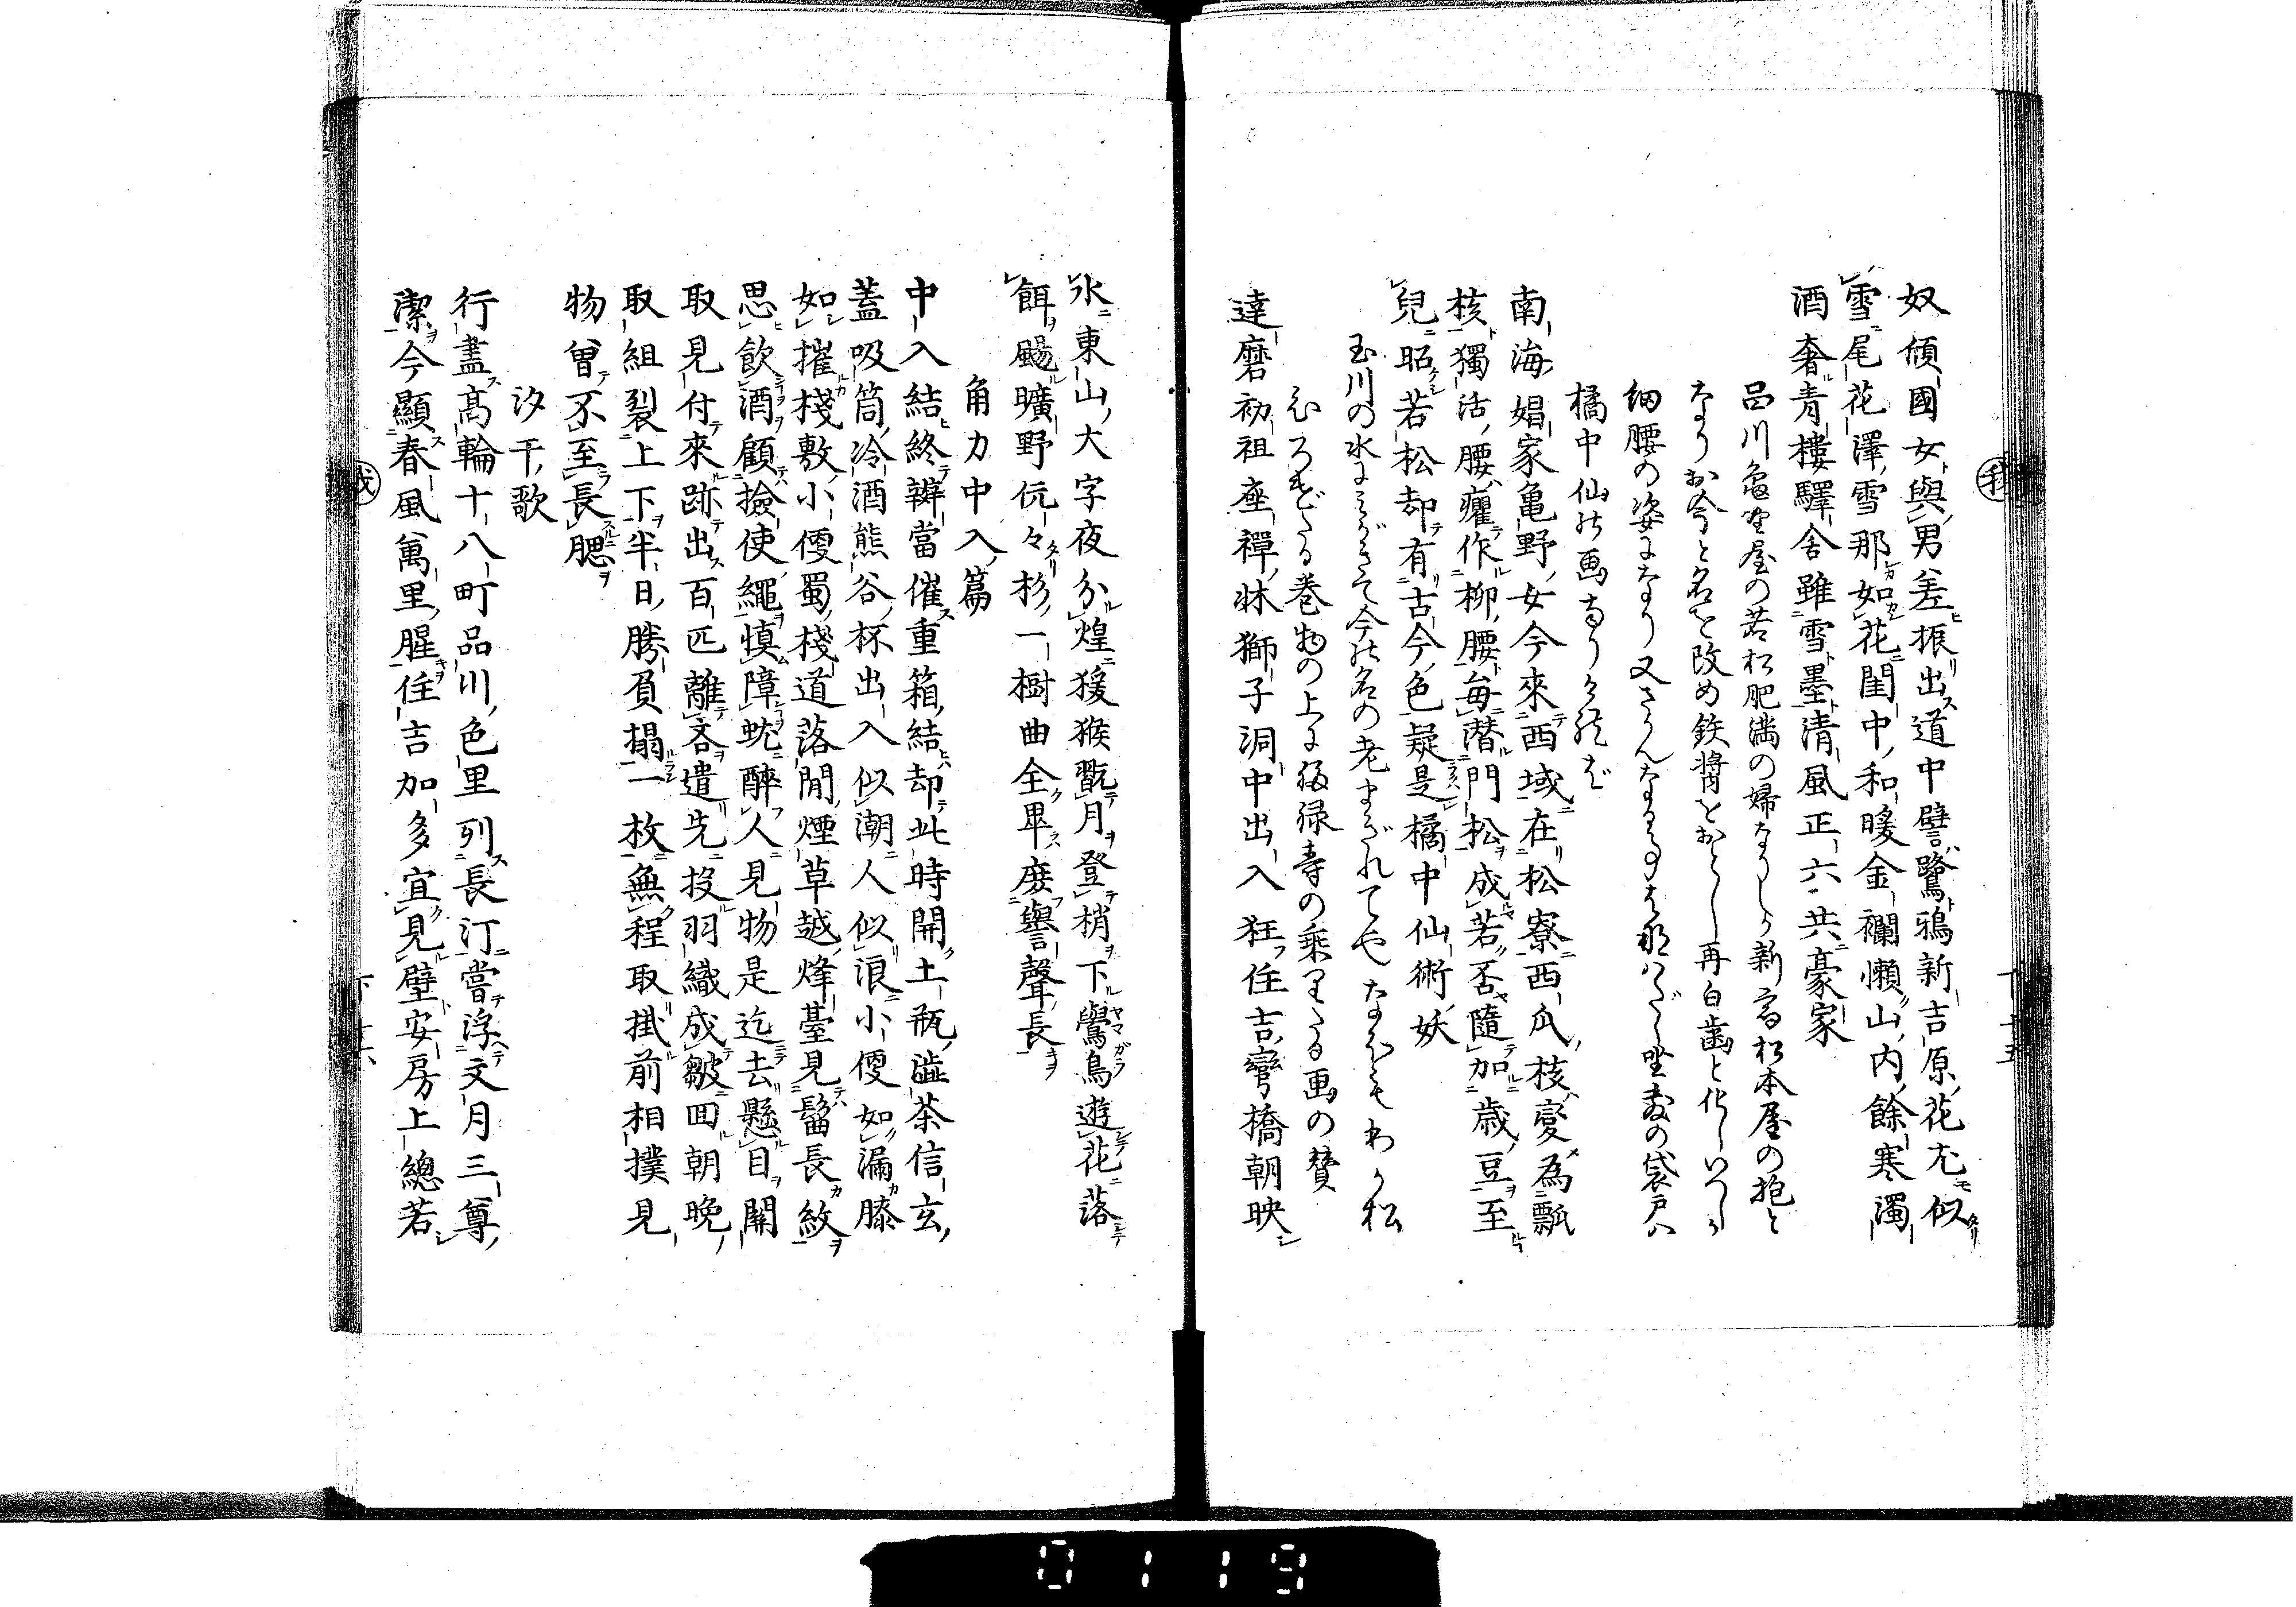 奴傾國女與男差振出道中譬鷺鴉新吉原花尤似
雪尾花澤雪那如花閨中和暖金襴懶山内餘寒濁
酒奢青樓驛舍雖雪墨清風正六共豪家
品川亀野屋の若松肥満の婦なりしが新宿松本屋の抱と
なりお今と名を改め鉄漿をおとし再白歯と化しいつしか
細腰の姿になり又さうんなる
橘中仙の画ありければ
南海娼家亀野女今來西域在松寮西瓜核變為瓢
核獨活腰癯作柳腰毎潜門松成若否隨加歳豆至
兒昭若松却有古今色疑是橘中仙術妖
玉川の水にみがきて今の名の老まぎれてやなほもわか松
むつまじき巻物の上に福禄寿の乗りたる画の賛
達磨初祖座禪牀獅子洞中出入狂住吉彎橋朝映
氷東山大字夜分煌猨猴翫月登梢下鸒鳥遊花落
餌颺曠野伉々杉一樹曲全畢庻譽聲長
角力中入篇
中入結終辨當催重箱結却此時開土瓶澁茶信玄
蓋吸筒冷酒熊谷杯出入似潮人似浪小便如漏膝
如摧棧敷小便蜀棧道落間煙草越烽臺見髷長紋
思飲酒顧撿使繩慎障蛇醉人見物是迄去懸目關
取見付來跡出百匹離吝遣先投羽織成皺回朝晩
取組裂上下半日勝負揭一枚無程取掛前相撲見
物曽不至長腮
汐干歌
行盡高輪十八町品川色里列長汀嘗浮文月三尊
潔今顯春風萬里腥住吉加多宜見壁安房上總若